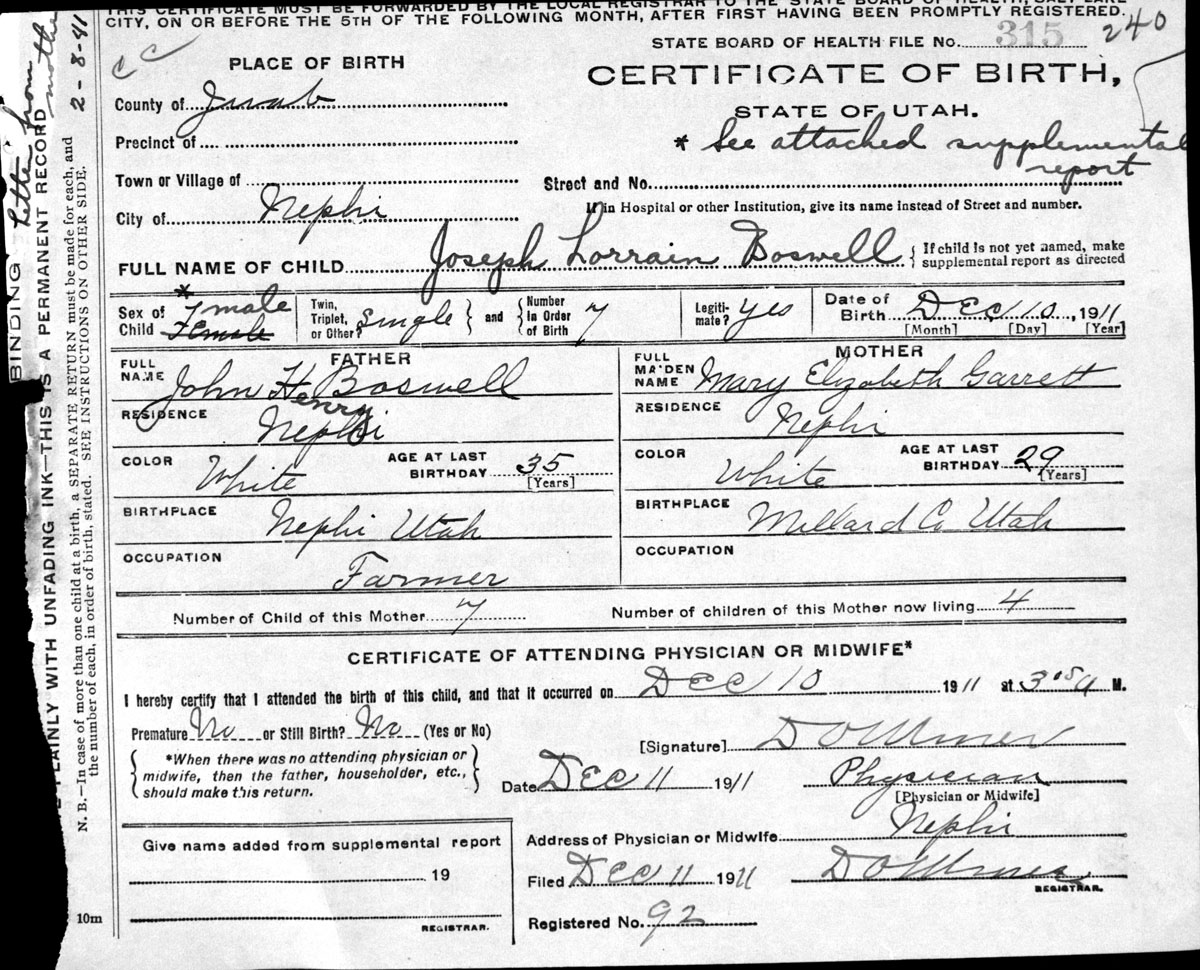 THIS CERTIFICATE MUST BE FORWARDED BY THE LOCAL REGISTRAR TO THE STATE BOARD OF HEALTH, SALT LAKE
CITY, ON OR BEFORE THE 5TH OF THE FOLLOWING MONTH, AFTER FIRST HAVING BEEN PROMPTLY REGISTERED.
240
STATE BOARD OF HEALTH FILE No. 315
CC
PLACE OF BIRTH
CERTIFICATE OF BIRTH,
STATE OF UTAH.
County of Juab
* See attached supplemental
report
Precinct of
Town or Village of
Street and No.
City of Nephi
If in Hospital or other Institution, give its name instead of Street and number.
FULL NAME OF CHILD Joseph Lorrain Boswell { If child is not yet named, make
supplemental report as directed
Sex of Child * male Female
Twin, Triplet, or Other? Single } and { Number In Order of Birth 7
Legiti-mate? Yes
Date of Birth DEC 10, 1911
[Month] [Day] [Year]
FATHER
FULL NAME John Henry Boswell
RESIDENCE Nephi
COLOR White AGE AT LAST BIRTHDAY 35 [Years]
BIRTHPLACE Nephi Utah
OCCUPATION Farmer
MOTHER
FULL MAIDEN NAME Mary Elizabeth Garrett
RESIDENCE Nephi
COLOR White AGE AT LAST BIRTHDAY 29 [Years]
BIRTHPLACE Millard Co Utah
OCCUPATION
Number of Child of this Mother 7 Number of children of this Mother now living 4
CERTIFICATE OF ATTENDING PHYSICIAN OR MIDWIFE*
I hereby certify that I attended the birth of this child, and that it occurred on DEC 10 1911 at 3 M.
Premature No or Still Birth? No (Yes or No)
{ *When there was no attending physician or
midwife, then the father, householder, etc.,
should make this return. }
[Signature]
Date DEC 11 1911 Physician
[Physician or Midwife]
Address of Physician or Midwife Nephi
Filed DEC 11 1911
REGISTRAR.
Registered No. 92
Give name added from supplemental report
19
REGISTRAR.
10m
BINDING
PLAINLY WITH UNFADING INK—THIS IS A PERMANENT RECORD
N. B.—In case of more than one child at a birth, a SEPARATE RETURN must be made for each, and
the number of each, in order of birth, stated. SEE INSTRUCTIONS ON OTHER SIDE.
from
mothe
2-8-41